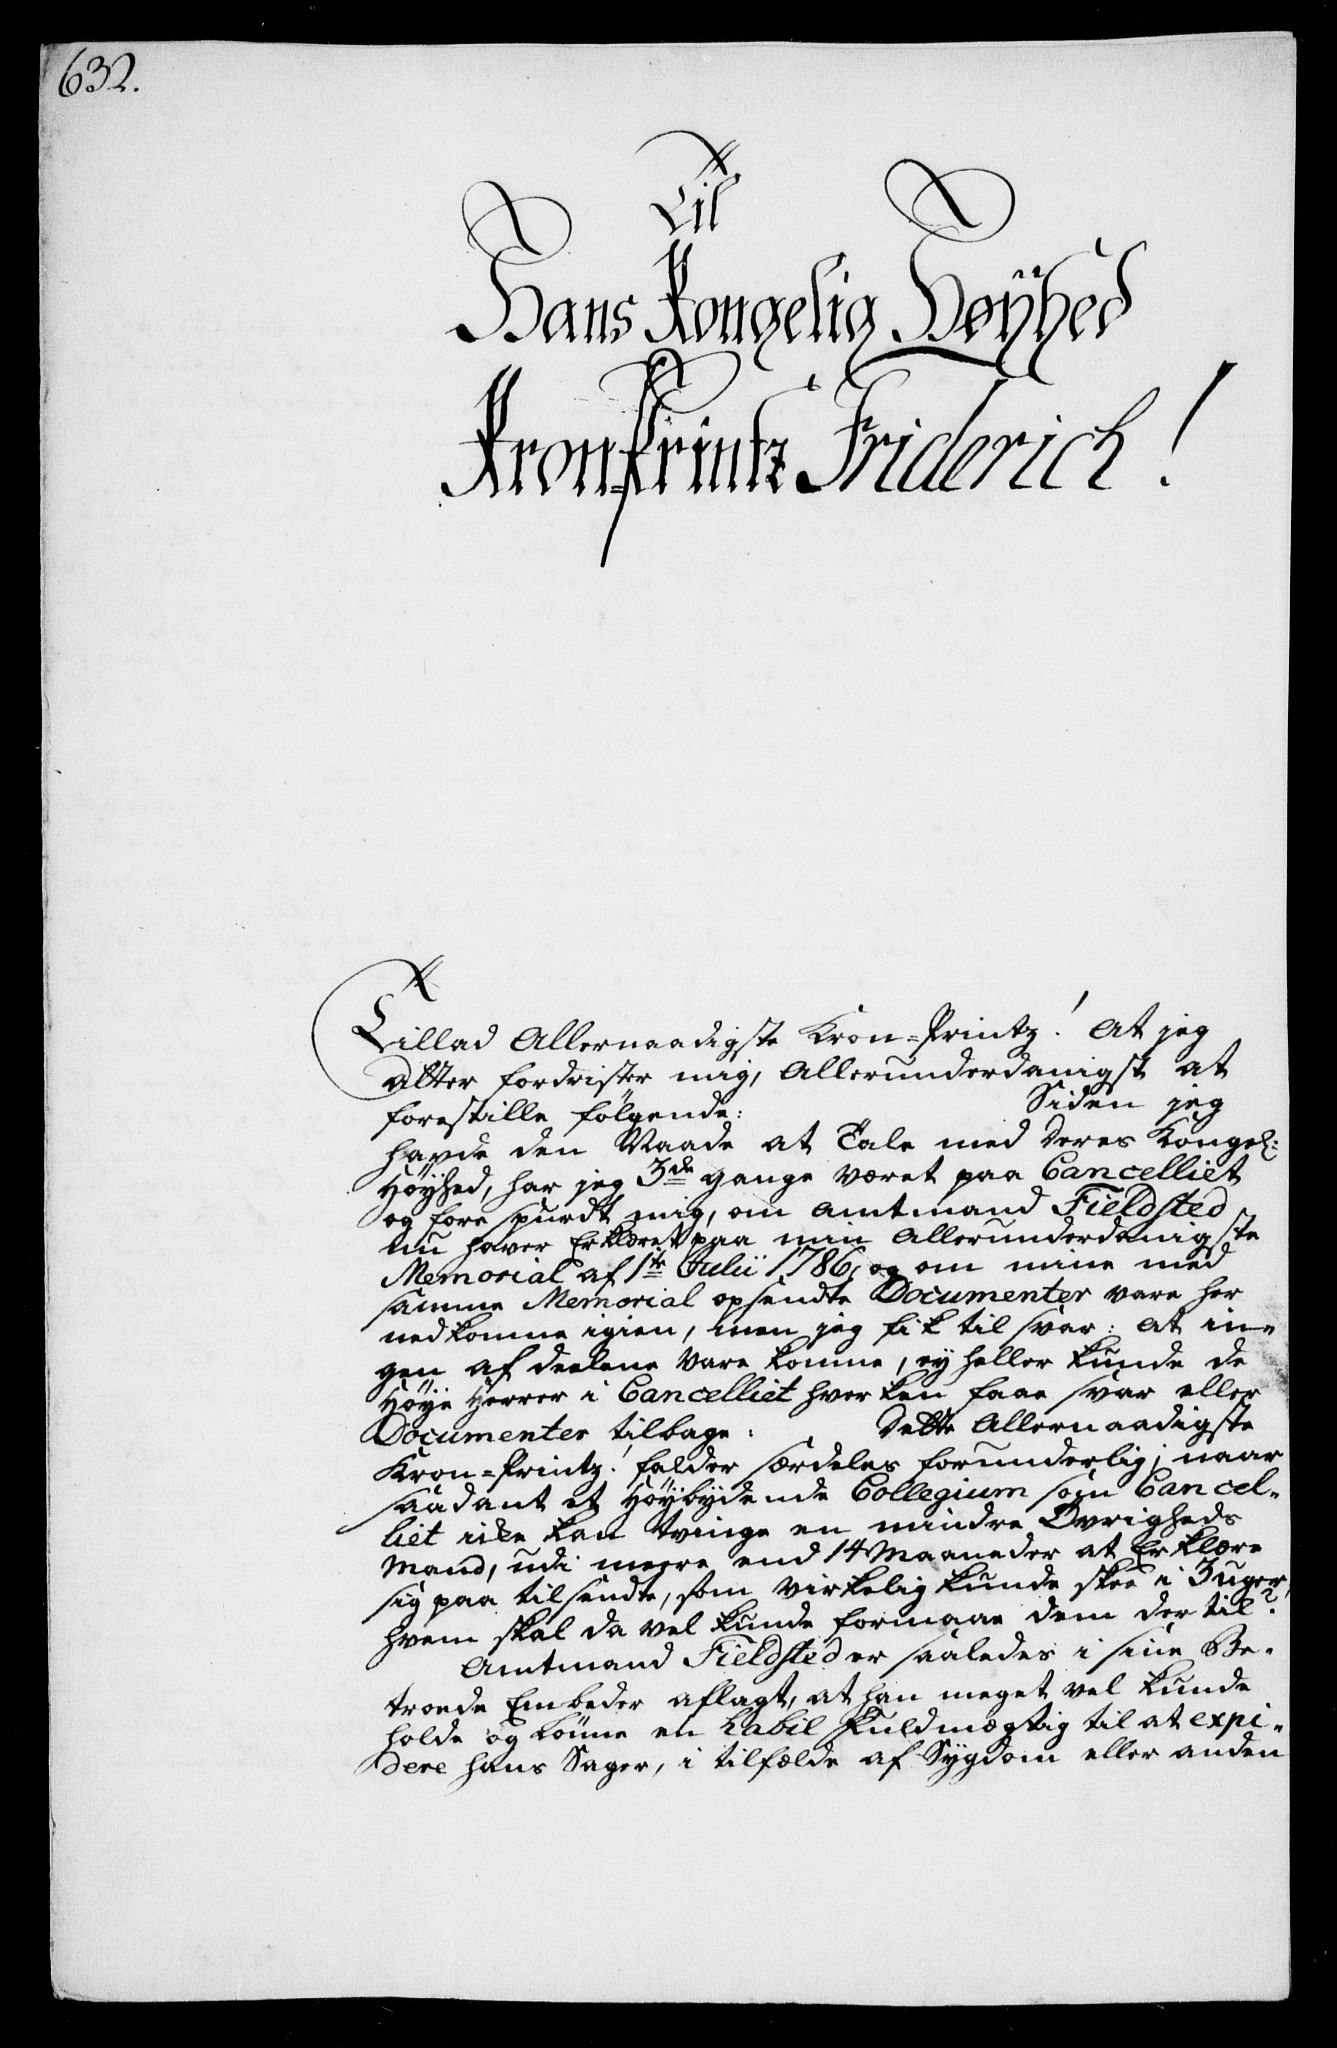 632.
Til
Hans Kongelig Høÿhed
Kron-Printz Friderich!
Tillad Allernaadigste Kron-Printz! At jeg
atter fordrister mig, Allerunderdanigst at
forestille følgende: Siden jeg
havde den Naade at Tale med Deres Kongel:
Høÿhed, har jeg 3de gange været paa Cancelliet
og fore spurdt mig, om Amtmand Fieldsted
nu haver Erklæret paa min Allerunderdanigste
Memorial af 1te Julii 1786, og om mine med
samme Memorial opsendte Documenter vare her
nedkomne igien, men jeg fik til svar: at in-
gen af deelene vare komne, eÿ heller kunde de
Høÿe Herrer i Cancelliet hverken faae svar eller
Documenter tilbage: Dette Allernaadigste
Kron-Printz! falder særdeles forunderlig; naar
saadant et Høÿbÿdende Collegium som Cancel-
liet ikke kan tvinge en mindre Øvrigheds
Mand, udi meere end 14 Maaneder at Erklære
sig paa tilsendte, som virkelig kunde skee i 3 uger,
hvem skal da vel kunde formaae dem der til?
Amtmand Fieldsted er saaledes i sine Be-
troede Embeder aflagt, at han meget vel kunde
holde og lønne en habil Fuldmægtig til at expi-
dere hans Sager, i tilfælde af Sÿgdom eller anden